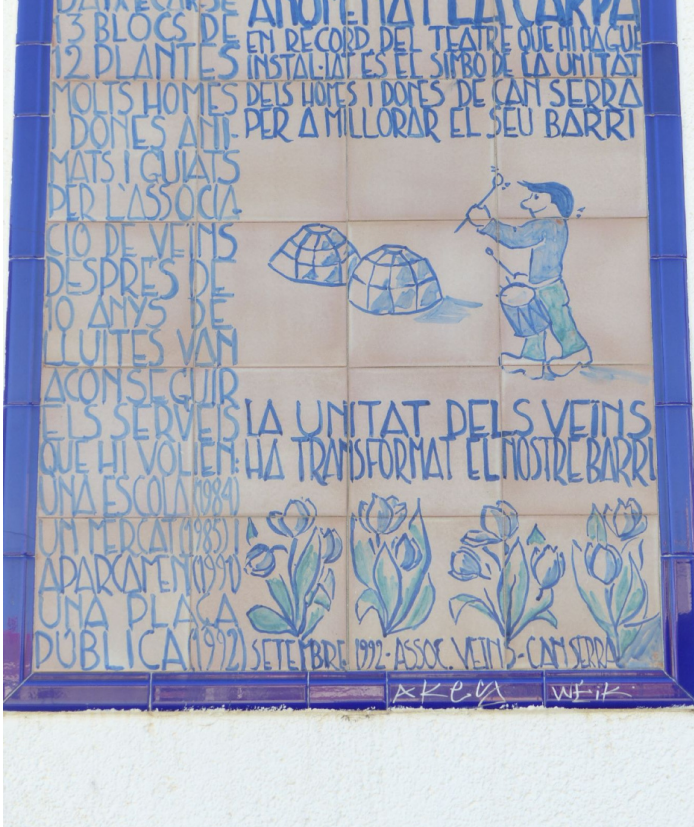 13 BLOCS DE
12 PLANTES
MOLTS HOMES
I DONES ANI-
MATS I GUIATS
PER L'ASSOCIA-
CIÓ DE VEÏNS
DESPRÉS DE
10 ANYS DE
LLUITES VAN
ACONSEGUIR
ELS SERVEIS
QUE HI VOLIEN:
UNA ESCOLA (1984)
UN MERCAT (1985)
APARCAMEN (1991)
UNA PLAÇA
PÚBLICA (1992)
LA CARPA
EN RECORD DEL TEATRE QUE HI HAGUÉ
INSTAL·LAT ÉS EL SÍMBO DE LA UNITAT
DELS HOMES I DONES DE CAN SERRA
PER A MILLORAR EL SEU BARRI
LA UNITAT DELS VEÏNS
HA TRANSFORMAT EL NOSTRE BARRI
SETEMBRE 1992-ASSOC. VEÏNS-CAN SERRA
WEIK